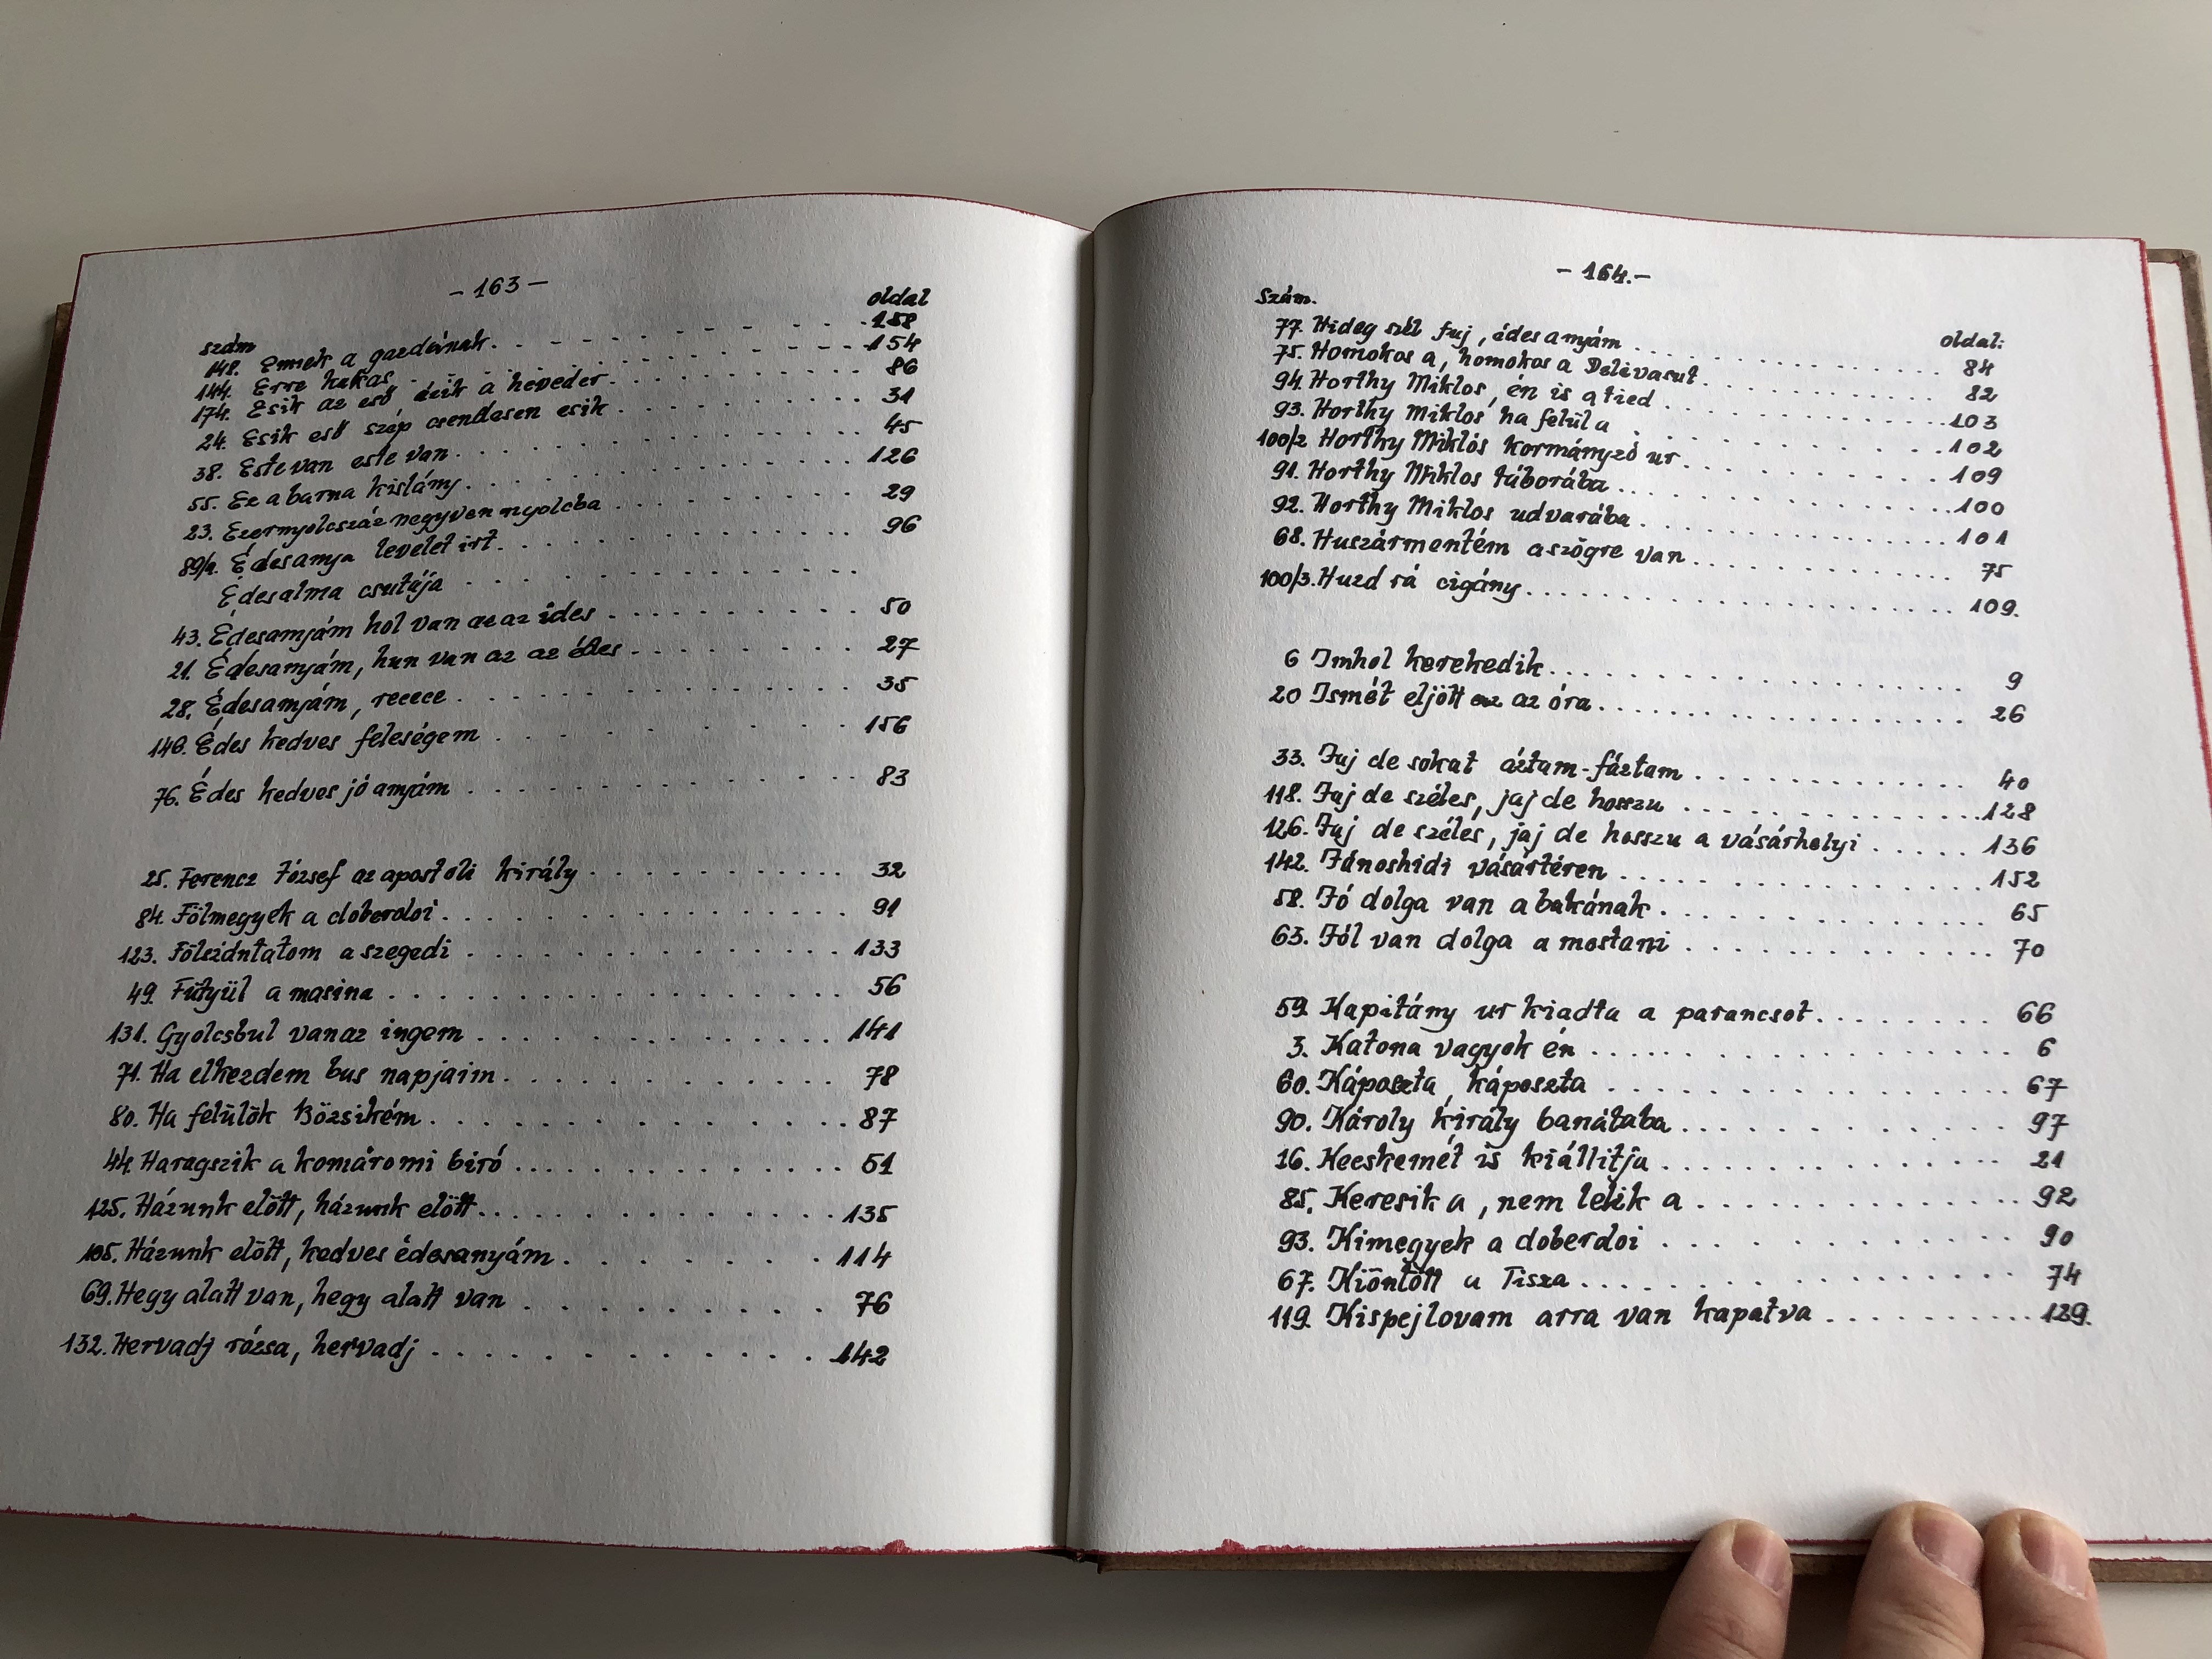 - 163 -
szám oldal
148. Ennek a gazdának. . . . . . . . . . 158
144. Erre kakas . . . . . . . . . . 154
174. Esik az eső ázik a heveder. . . . . . . . . . 86
24. Esik eső szép csendesen esik . . . . . . . . . . 31
38. Este van este van . . . . . . . . . . 45
55. Ez a barna kislány. . . . . . . . . . 126
23. Ezernyolcszáz negyven nyolcba . . . . . . . . . . 29
89/a. Édesanya levelet irt. . . . . . . . . . 96
Édesalma csutája . . . . . . . . . .
43. Édesanyám hol van az az ides . . . . . . . . . . 50
21. Édesanyám, hun van az az édes . . . . . . . . . . 27
28. Édesanyám, recece . . . . . . . . . . 35
146. Édes kedves feleségem . . . . . . . . . . 156
76. Édes kedves jó anyám . . . . . . . . . . 83
25. Ferencz József az apostoli király . . . . . . . . . . 32
84. Fölmegyek a doberdoi . . . . . . . . . . 91
123. Fölszántatom a szegedi . . . . . . . . . . 133
49. Fütyül a masina . . . . . . . . . . 56
131. Gyolcsbul van az ingem . . . . . . . . . . 141
71. Ha elkezdem bus napjaim . . . . . . . . . . 78
80. Ha felülök Bözsikém . . . . . . . . . . 87
44. Haragszik a komáromi biró . . . . . . . . . . 51
125. Házunk előtt, házunk előtt . . . . . . . . . . 135
105. Házunk előtt, kedves édesanyám . . . . . . . . . . 114
69. Hegy alatt van, hegy alatt van . . . . . . . . . . 76
132. Hervadj rózsa, hervadj . . . . . . . . . . 142
- 164. -
Szám. oldal:
77. Hideg szél fuj, édesanyám . . . . . . . . . . 84
75. Homokos a, homokos a Delivasut . . . . . . . . . . 82
94. Horthy Miklos, én is a tied . . . . . . . . . . 103
93. Horthy Miklos ha felül a . . . . . . . . . . 102
100/2 Horthy Miklós kormányzó ur . . . . . . . . . . 109
91. Horthy Miklos táborába . . . . . . . . . . 100
92. Horthy Miklos udvarába . . . . . . . . . . 101
68. Huszármentém a szögre van . . . . . . . . . . 75
100/3. Huzd rá cigány . . . . . . . . . . 109.
6 Imhol kerekedik . . . . . . . . . . 9
20 Ismét eljött az az óra . . . . . . . . . . 26
33. Jaj de sokat áztam-fáztam . . . . . . . . . . 40
118. Jaj de széles, jaj de hosszu . . . . . . . . . . 128
126. Jaj de szélés, jaj de hosszu a vásárhelyi . . . . . 136
142. Jánoshidi vásártéren . . . . . . . . . . 152
58. Jó dolga van a bakának . . . . . . . . . . 65
63. Jól van dolga a mostani . . . . . . . . . . 70
59. Kapitány ur kiadta a parancsot . . . . . . . . 66
3. Katona vagyok én . . . . . . . . . . 6
60. Káposzta, káposzta . . . . . . . . . . 67
90. Károly király banátaba . . . . . . . . . . 97
16. Kecskemét is kiállitja . . . . . . . . . . 21
85. Keresik a, nem lelik a . . . . . . . . . . 92
93. Kimegyek a doberdoi . . . . . . . . . . 90
67. Kiöntött a Tisza . . . . . . . . . . 74
119. Kispejlovam arra van kapatva . . . . . . . . . . 129.